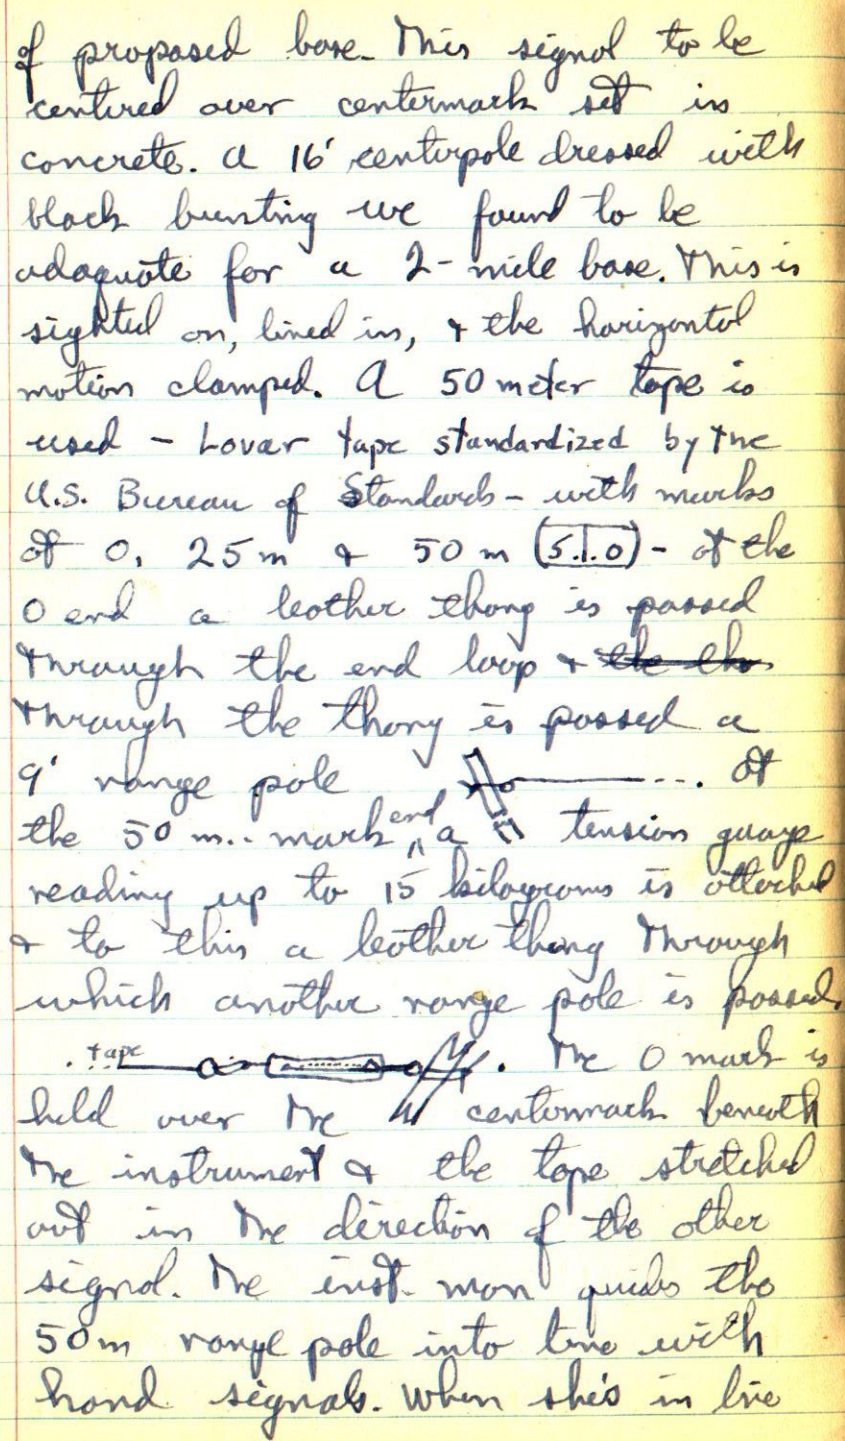 of proposed base. This signal to be
centered over centermark set in
concrete. A 16' centerpole dressed with
black bunting we found to be
adaquate for a 2-mile base. This is
sighted on, lined in, & the horizontal
motion clamped. A 50 meter tape is
used - Lovar tape standardized by the
U.S. Bureau of Standards - with marks
at 0, 25 m & 50 m (5.|.0) - at the
0 end a leather thong is passed
through the end loop & the tho
through the thong is passed a
9' range pole ... at
the 50 m.. mark end a tension guage
reading up to 15 kilograms is attached
& to this a leather thong through
which another range pole is passed.
tape . The 0 mark is
held over the centermark beneath
the instrument & the tape stretched
out in the direction of the other
signal. The inst. man guides the
50m range pole into line with
hand signals. When she's in line